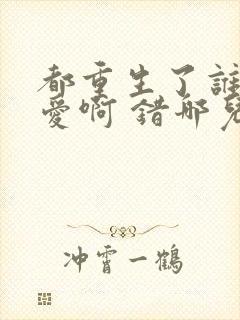 都重生了誰
愛啊 錯哪兒
冲霄一鶴